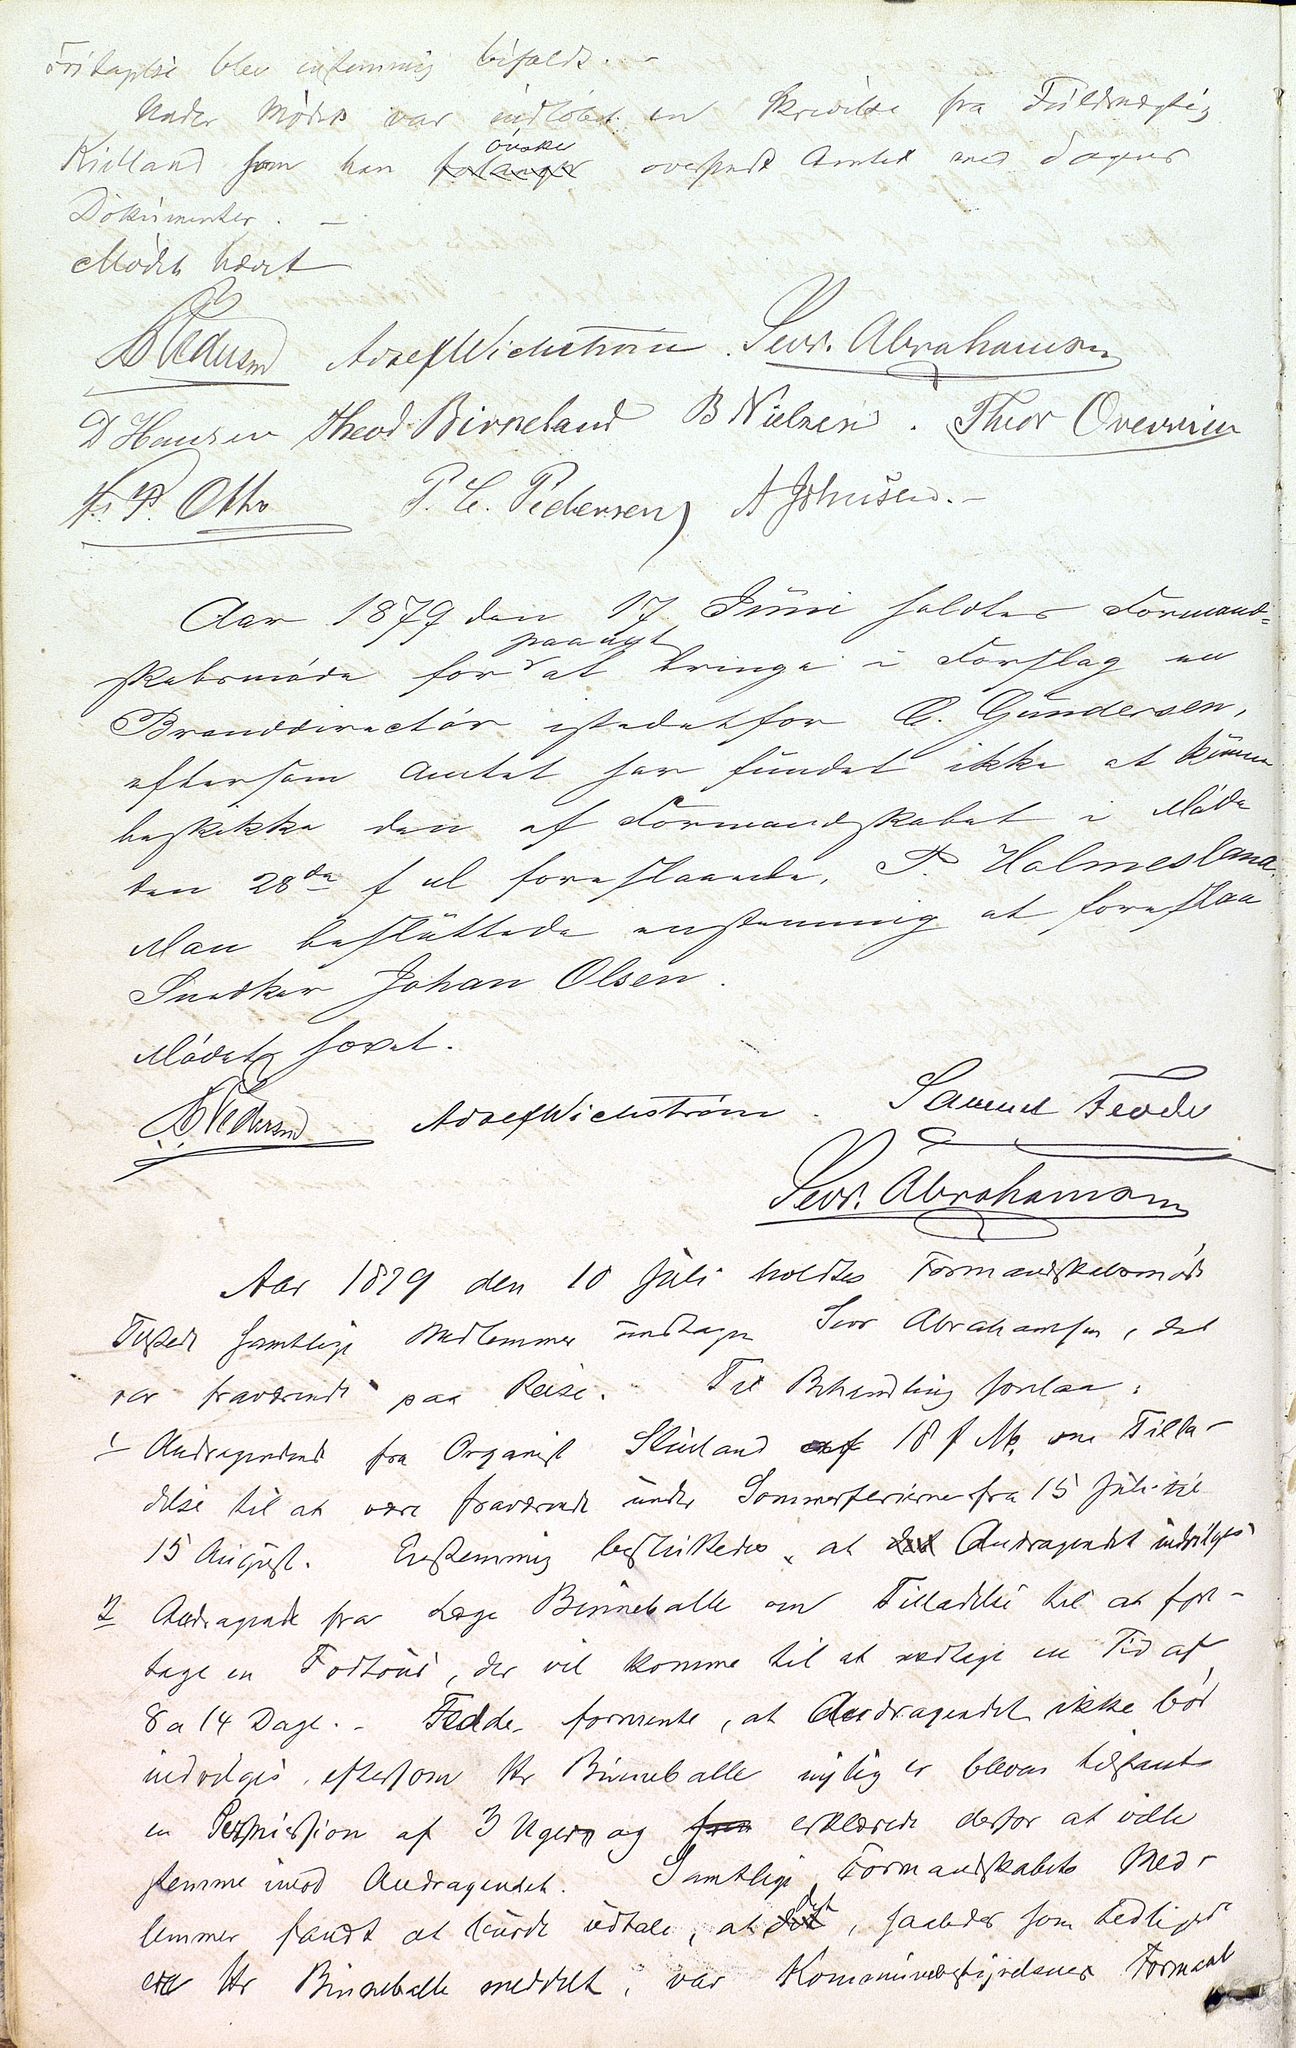 Fritagelse blev enstemmig bifaldt. -
Under Mødet var indløbet en Skrivelse fra Fuldmægtig
Kielland som han forlanger ønsker oversendt Amtet med Sagens
Dokumenter. -
Mødet hævet
B Pedersen Adolf Wichstrøm. Sevr. Abrahamsen
D Hansen Theod Birkeland B Nielsen. Thor Overvien
F. P. Otto P. C. Pedersen A Johnsen. -
Aar 1879 den 17 Juni holdtes Formand-
skabsmøde for paanyt at bringe i Forslag en
Branddirectør istedetfor C. Gundersen,
eftersom Amtet har fundet ikke at kunne
beskikke den af Formandskabet i Møde
den 28de f M foreslaaede, P. Holmesland.
Man besluttede enstemmig at foreslaa
Snedker Johan Olsen.
Mødet hævet.
B Pedersen Adolf Wichstrøm. Samuel Fedde
Sevr. Abrahamsen
Aar 1879 den 10 Juli holdtes Formandskabsmøde
Tilstede samtlige Medlemmer undtagen Sevr Abrahamsen, der
var fraværende paa Reise. Til Behandling forelaa:
1 Andragende fra Organist Stuland af 18 f M. om Tilla-
delse til at være fraværende under Sommerferierne fra 15 Juli til
15 August. Enstemmig besluttedes, at det Andragendet indvilges
2 Andragende fra Læge Binneballe om Tilladelse til at fore-
tage en Fodtour, der vil komme til at medtage en Tid af
8 a 14 Dage. - Fedde formente, at Andragendet ikke bør
indvilges, eftersom Hr Binneballe nylig er bleven tilstaaet
en Permission af 3 Uger, og erklærede derfor at ville
stemme imod Andragendet. Samtlige Formandskabets Med-
lemmer fandt at burde udtale, at det, saaledes som tidligere
Hr Binneballe meddelt, var Kommunebestyrelsens Formaal